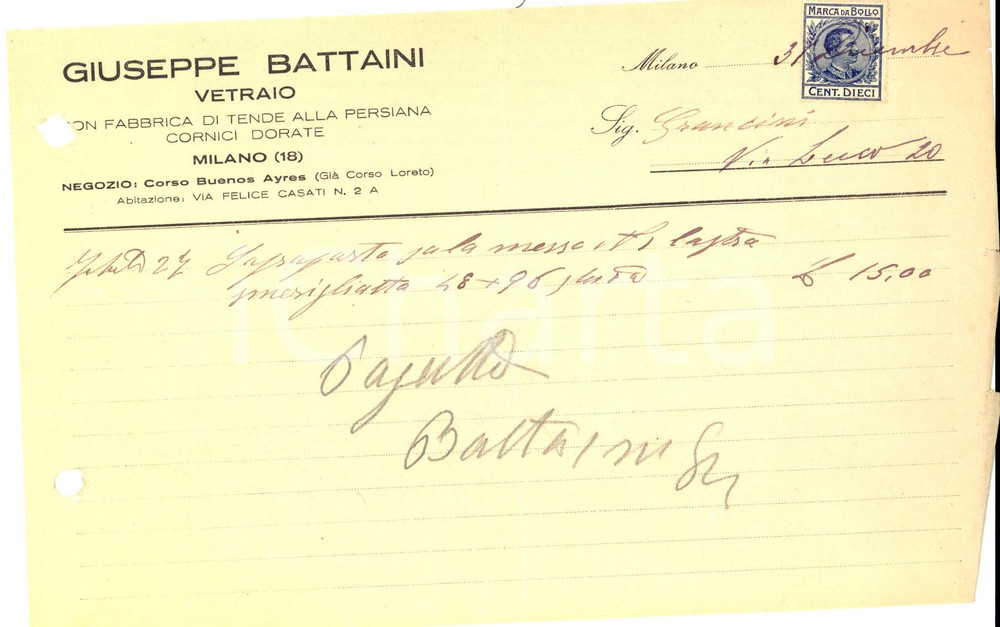 GIUSEPPE BATTAINI
VETRAIO
CON FABBRICA DI TENDE ALLA PERSIANA
CORNICI DORATE
MILANO (18)
NEGOZIO: Corso Buenos Ayres (Già Corso Loreto)
Abitazione: VIA FELICE CASATI N. 2 A
MARCA DA BOLLO
CENT. DIECI
Milano 31
Sig. Grancini
Via Lecco 20
27 sala messo N 1 lastra
smerigliatta 48 + 96 £ 15,00
icharta
Pagatto
Battaini